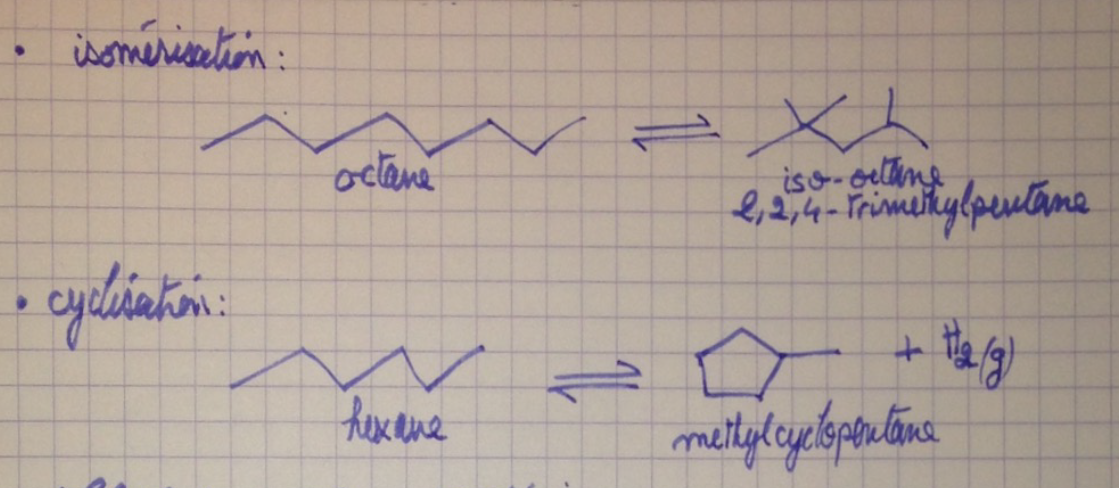 • isomérisation :
octane
iso-octane
2,2,4-trimethylpentane
• cyclisation :
+ H₂(g)
hexane
methylcyclopentane